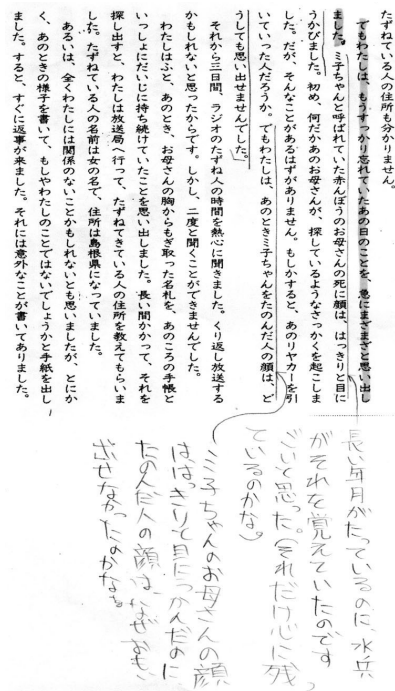 たずねている人の住所も分かりません。
でもわたしは、もうすっかり忘れていたあの日のことを、急にまざまざと思い出し
ました。ミ子ちゃんと呼ばれていた赤んぼうのお母さんの死に顔は、はっきりと目に
うかびました。初め、何だかあのお母さんが、探しているようなさっかくを起こしま
した。だが、そんなことがあるはずがありません。もしかすると、あのリヤカーを引
いていった人だろうか。でもわたしは、あのときミ子ちゃんをたのんだ人の顔は、ど
うしても思い出せませんでした。
それから三日間、ラジオのたずね人の時間を熱心に聞きました。くり返し放送する
かもしれないと思ったからです。しかし、二度と聞くことができませんでした。
わたしはふと、あのとき、お母さんの胸からもぎ取った名札を、あのころの手帳と
いっしょにだいじに持ち続けていたことを思い出しました。長い間かかって、それを
探し出すと、わたしは放送局へ行って、たずねてきている人の住所を教えてもらいま
した。たずねている人の名前は女の名で、住所は島根県になっていました。
あるいは、全くわたしには関係のないことかもしれないとも思いましたが、とにか
く、あのときの様子を書いて、もしやわたしのことではないでしょうかと手紙を出し
ました。すると、すぐに返事が来ました。それには意外なことが書いてありました。
長い年月がたっているのに、水兵
がそれを覚えていたのです
ごいと思った。(それだけ心に残っ
ているのかな)
ミ子ちゃんのお母さんの顔
ははっきりと目にうかんだのに、
たのんだ人の顔は、なぜおもい
出せなかったのかな。